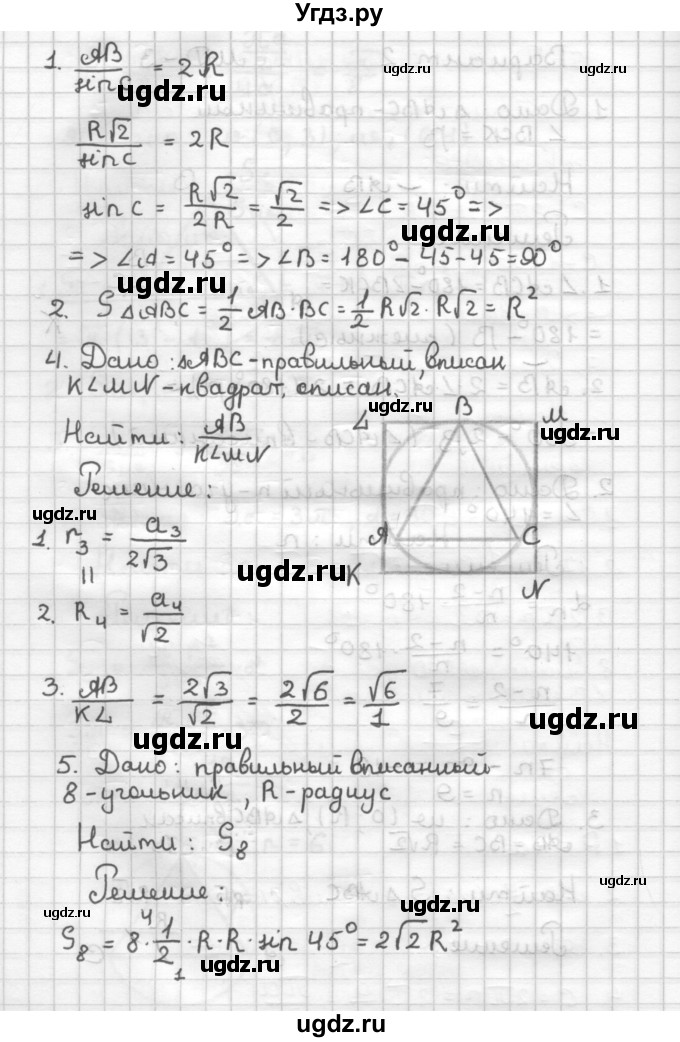 Угдз.ру
1. AB/sin C = 2R
ugdz.ru ugdz.ru
ugdz.ru
R√2/sin C = 2R
sin C = R√2/2R = √2/2 => ∠C = 45° =>
ugdz.ru
=> ∠A = 45° => ∠B = 180° - 45 - 45 = 90°
ugdz.ru
2. S△ABC = 1/2 AB · BC = 1/2 R√2 · R√2 = R²
4. Дано: △ABC - правильный, вписан
KLMN - квадрат, описан.
ugdz.ru
Найти: AB/KLMN
L B M
Решение:
ugdz.ru
1. r₃ = a₃/2√3
A C
ugdz.ru
K N
=
2. R₄ = a₄/√2
3. AB/KL = 2√3/√2 = 2√6/2 = √6/1
ugdz.ru
5. Дано: правильный вписанный
8-угольник, R - радиус
Найти: S₈
Решение:
ugdz.ru ugdz.ru
S₈ = 8 4 · 1/2 1 · R · R · sin 45° = 2√2 R²
ugdz.ru
ugdz.ru